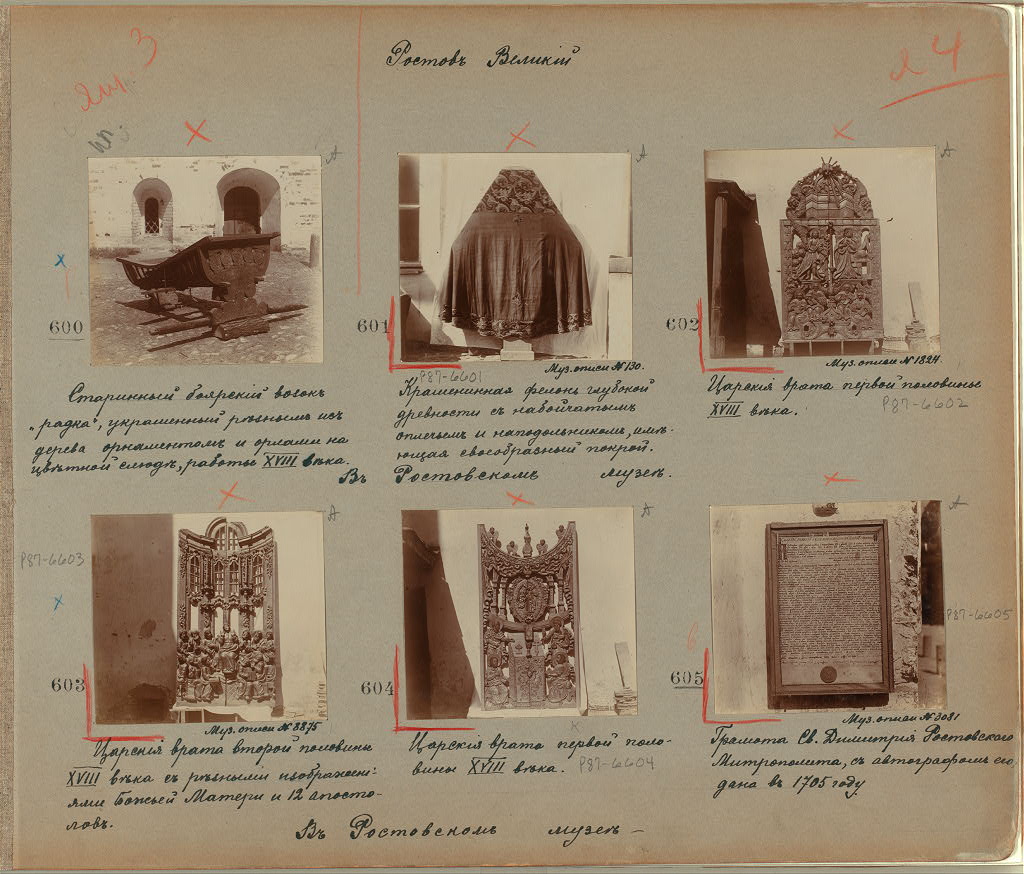 Ростовъ Великій
3
л 4
А
А
А
600
601
602
Муз. описи № 130.
Муз. описи № 1824.
P87-6601
P87-6602
Старинный боярскій возокъ
„радка", украшенный рѣзнымъ изъ
дерева орнаментомъ и орлами на
цвѣтной слюдѣ, работы XVIII вѣка.
Крашенинная фелонь глубокой
древности съ набойчатымъ
оплечьемъ и наподольникомъ, имѣ-
ющая своеобразный покрой.
Царскія врата первой половины
XVIII вѣка.
Въ Ростовскомъ музеѣ.
P87-6603
А
А
А
P87-6605
603
604
605
Муз. описи № 8875
Муз. описи № 3081
Царскія врата второй половины
XVIII вѣка съ рѣзными изображені-
ями Божьей Матери и 12 апосто-
ловъ.
Царскія врата первой поло-
вины XVIII вѣка.
P87-6604
Грамота Св. Димитрія Ростовскаго
Митрополита, съ автографомъ его,
дана въ 1705 году
Въ Ростовскомъ музеѣ —